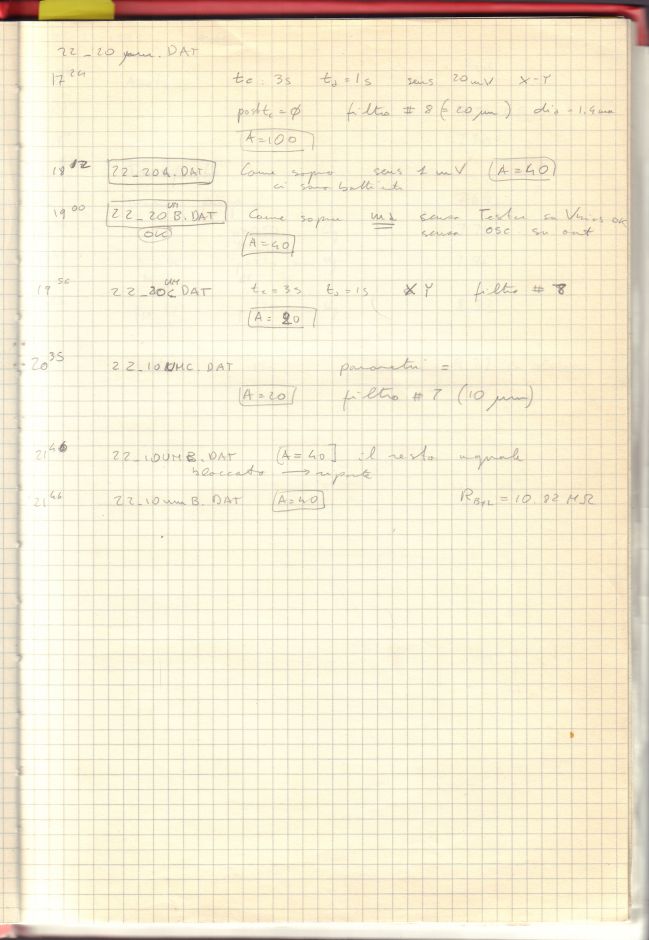 22_20 µm. DAT
17 24 tc: 3s td = 1s sens 20mV X-Y
post tc = ∅ filtro # 8 (= 20 µm) dia = 1.4 mm
A = 100
18 12 22_20A.DAT Come sopra sens 1 mV (A = 40)
ci sono battimenti
19 00 22_20 UM B.DAT Come sopra ma senza Tester su Vbias OK
OK senza OSC su out
A = 40
19 50 22_20 UM C DAT tc = 3s td = 1s X Y filtro # 8
A = 20
20 35 22_10UMC.DAT parametri =
A = 20 filtro # 7 (10 µm)
21 46 22_10UMB.DAT [A = 40] il resto uguale
bloccato → riparte
21 46 22_10umB.DAT A = 40 = 10.82 MΩ